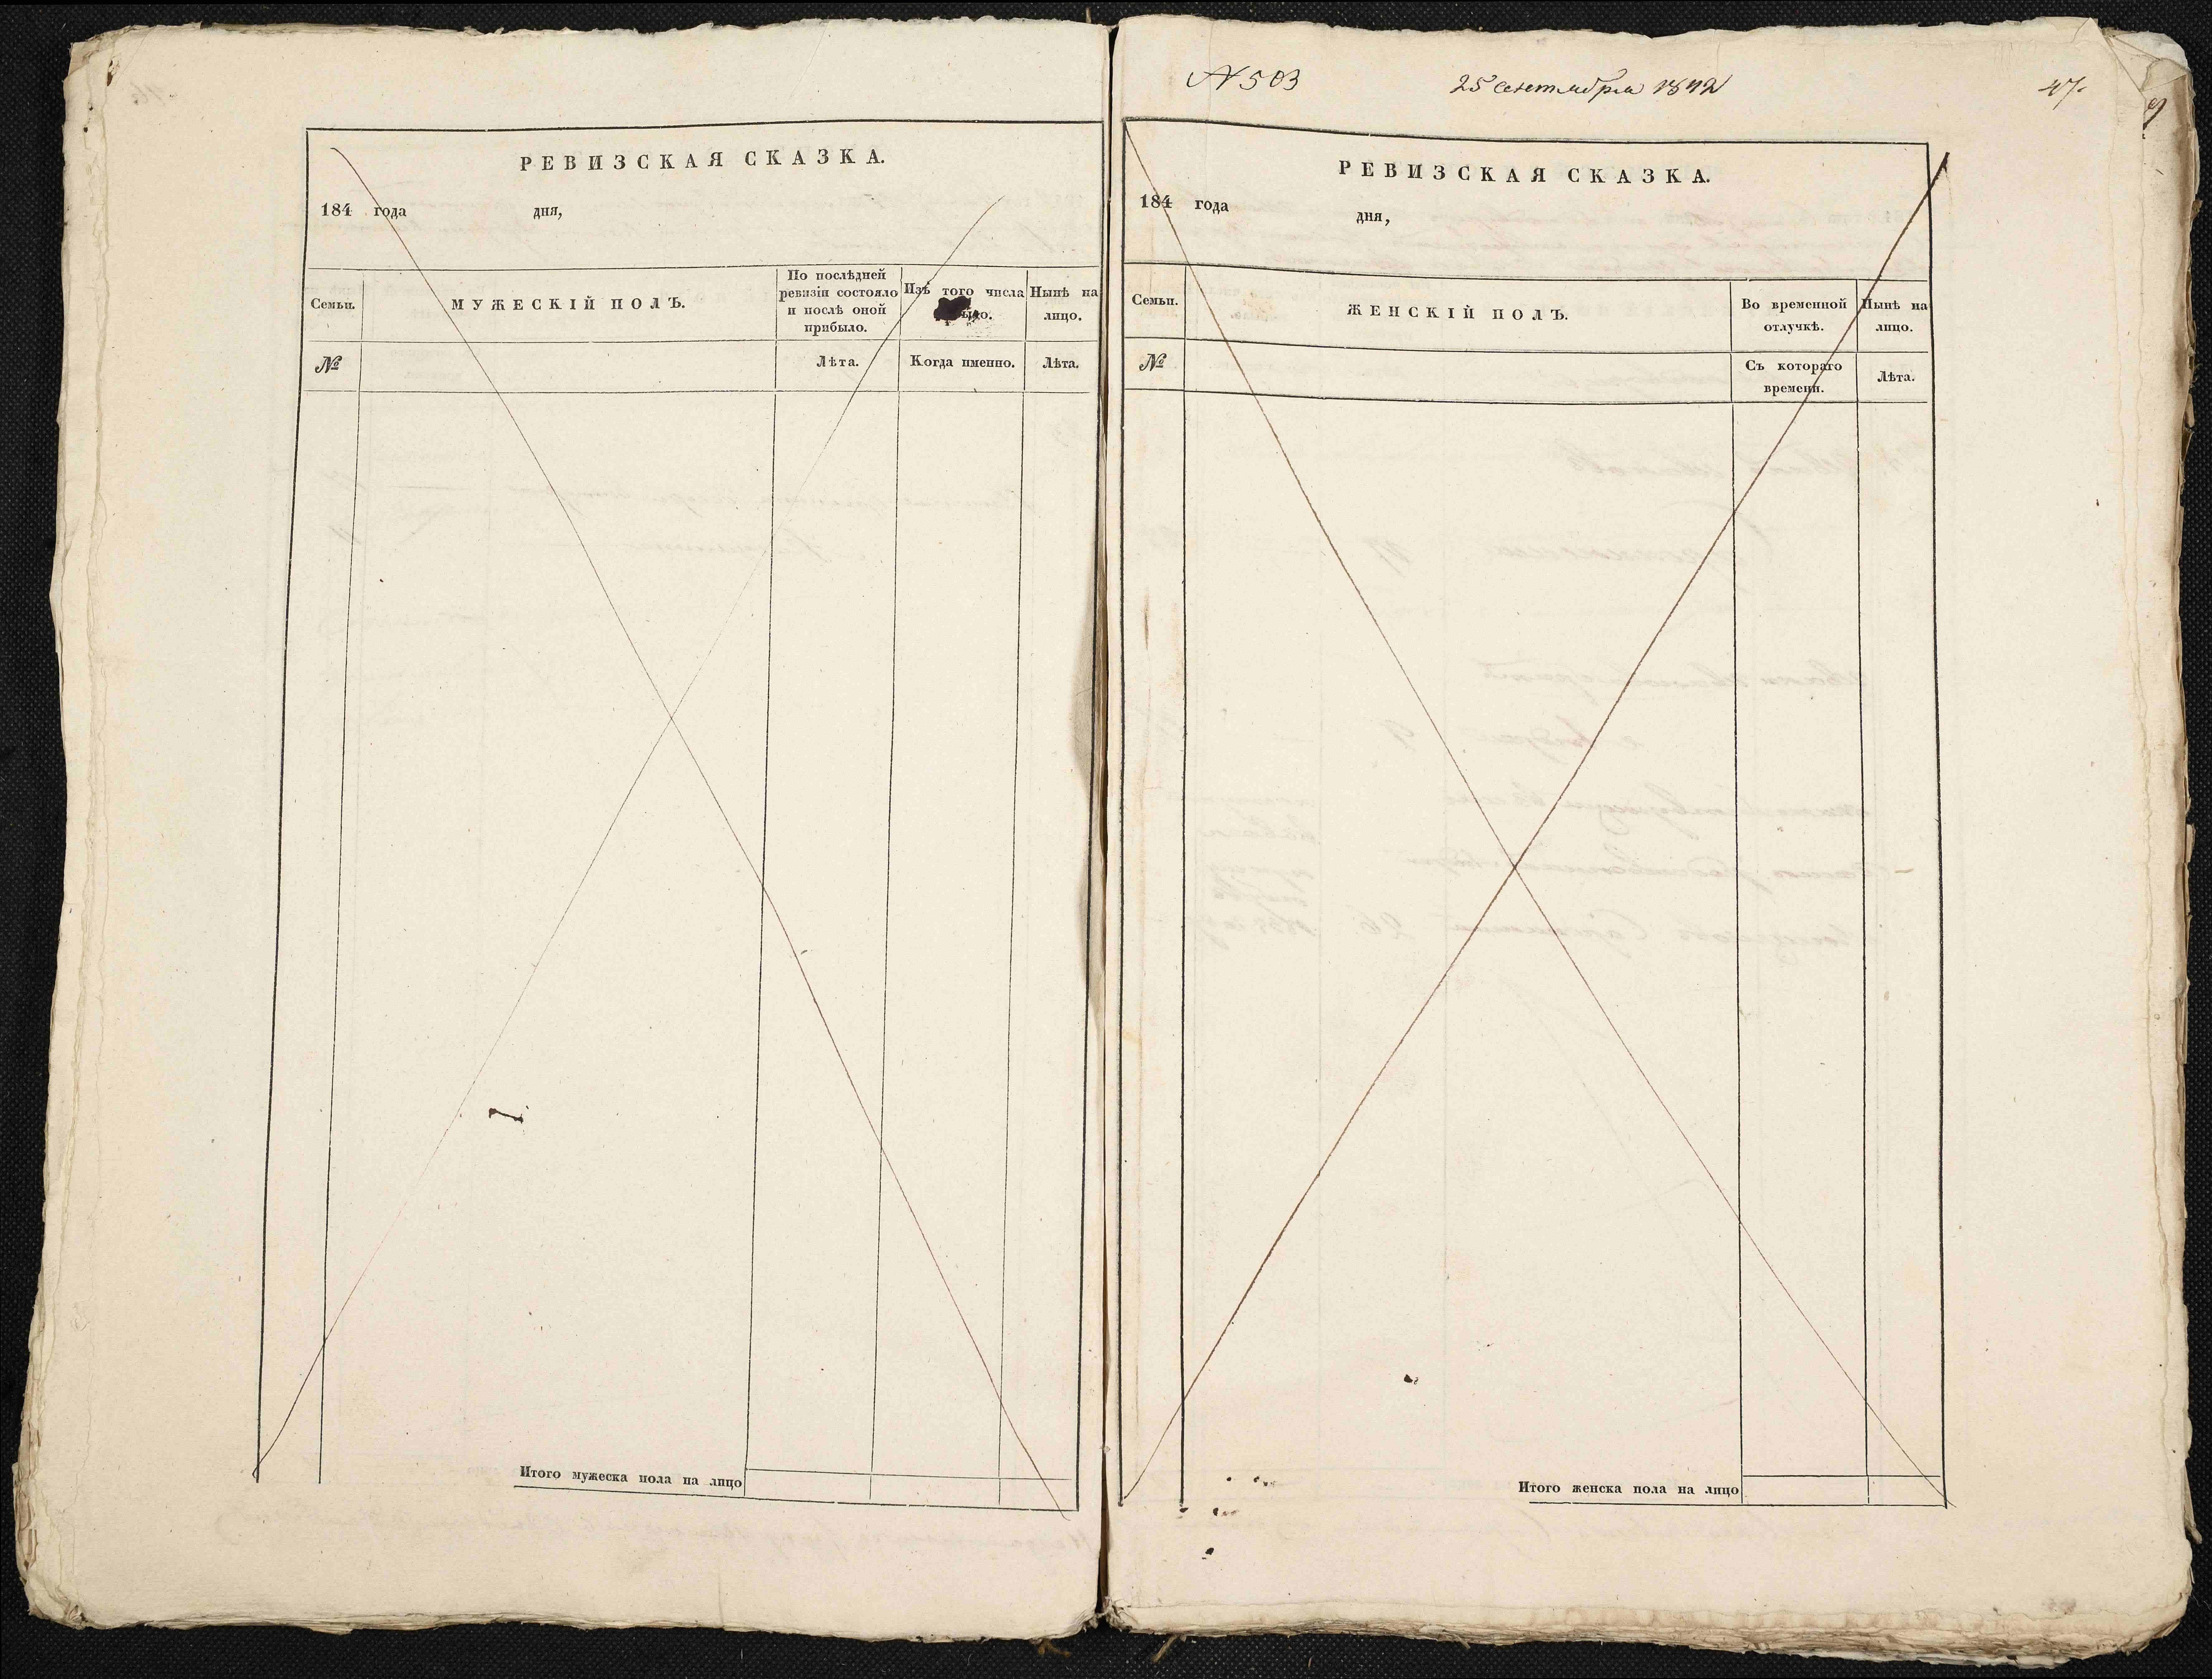 РЕВИЗСКАЯ СКАЗКА.
184 года дня,
Семьи.
МУЖЕСКІЙ ПОЛЪ.
По послѣдней
ревизіи состояло
и послѣ оной
прибыло.
Изъ того числа
Нынѣ на
лицо.
№
Лѣта.
Когда именно.
Лѣта.
Итого мужеска пола на лицо
N 503
25 сентября 1842
47.
РЕВИЗСКАЯ СКАЗКА.
184 года дня,
Семьи.
ЖЕНСКІЙ ПОЛЪ.
Во временной
отлучкѣ.
Нынѣ на
лицо.
№
Съ котораго
времени.
Лѣта.
Итого женска пола на лицо